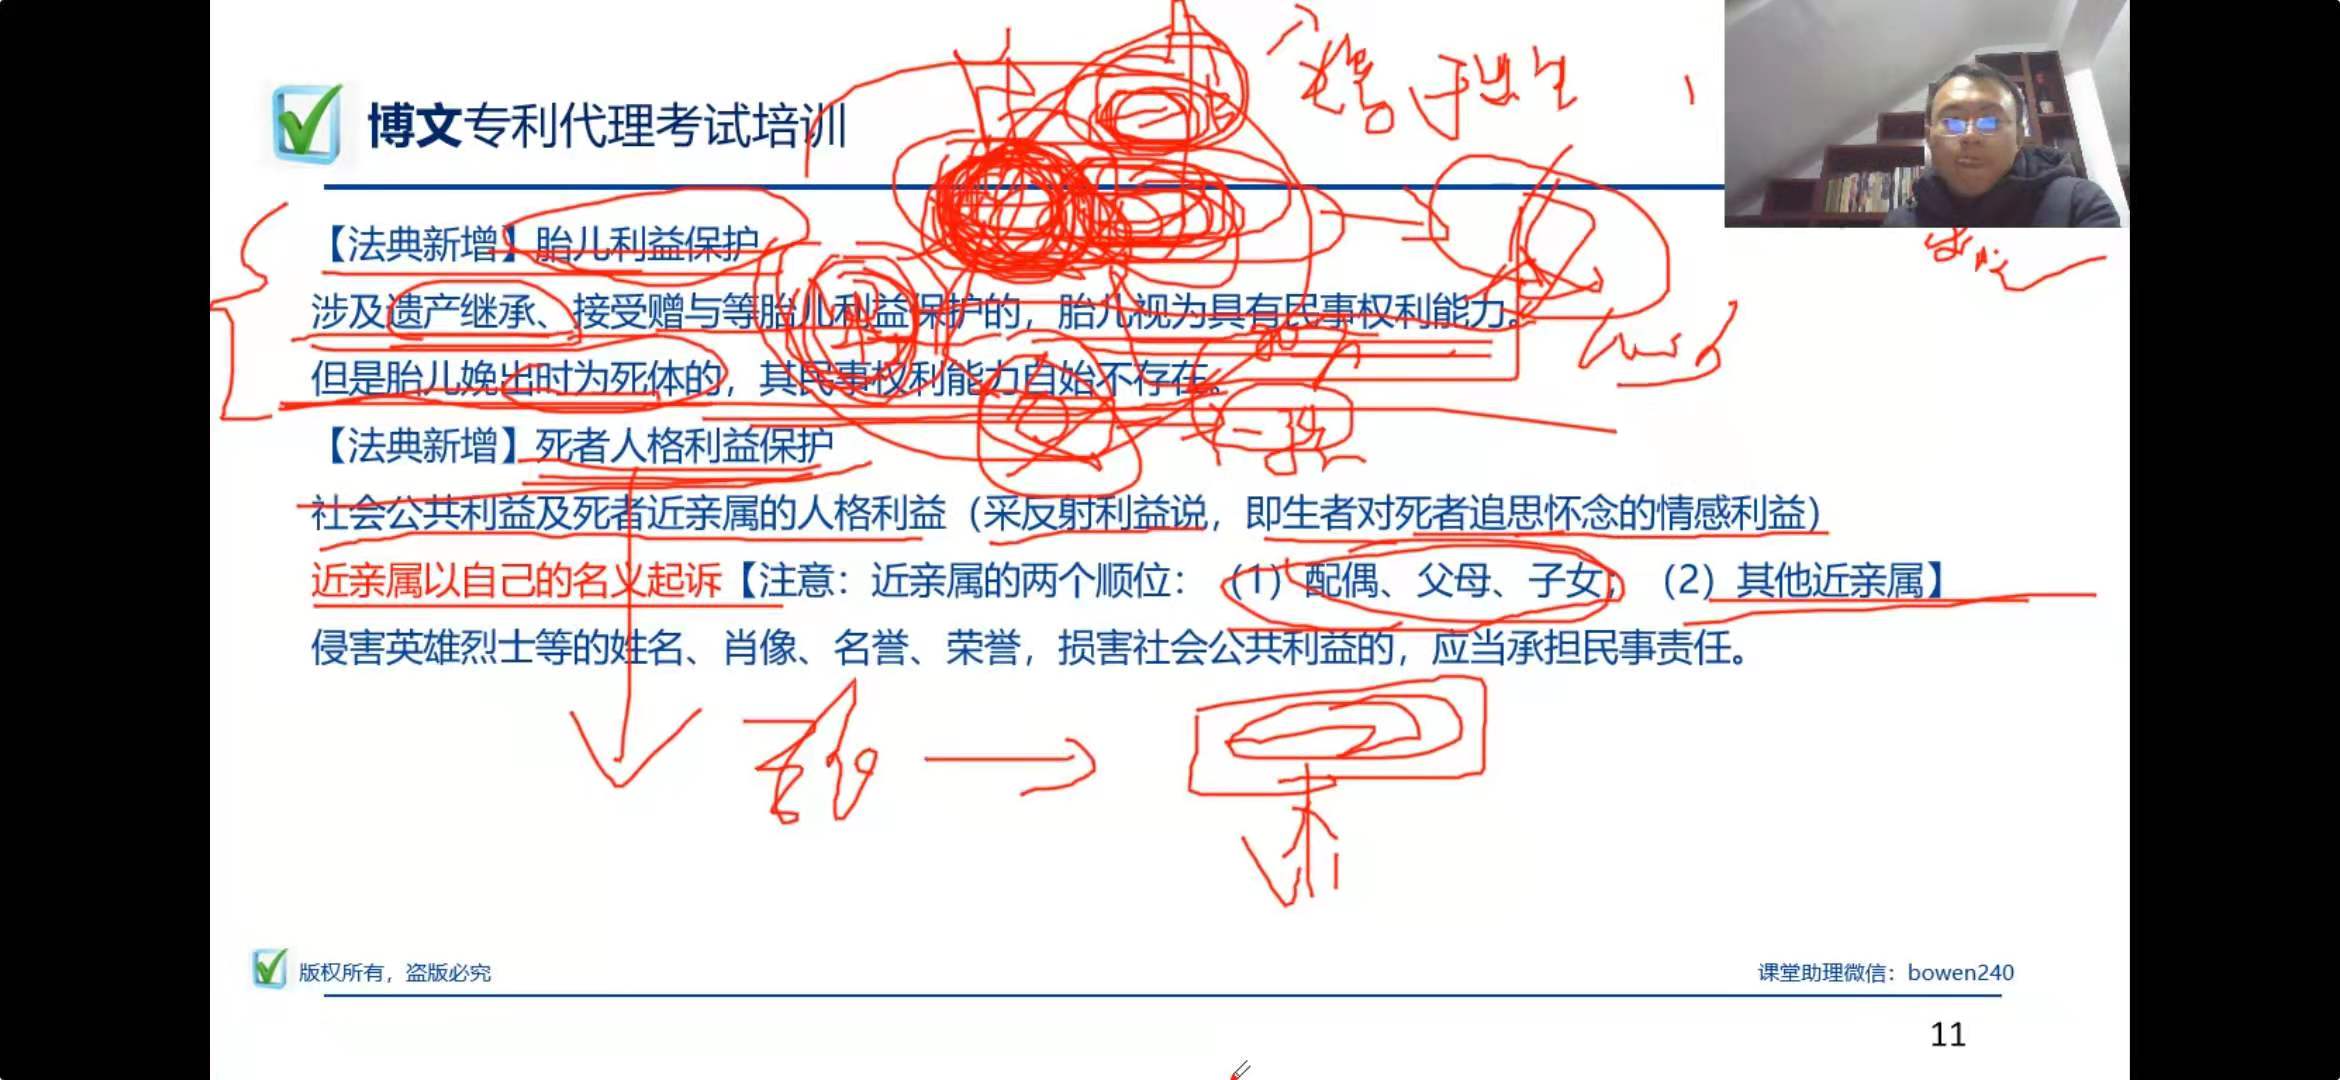 博文专利代理考试培训
【法典新增】胎儿利益保护
涉及遗产继承、接受赠与等胎儿利益保护的，胎儿视为具有民事权利能力。
但是胎儿娩出时为死体的，其民事权利能力自始不存在。
【法典新增】死者人格利益保护
社会公共利益及死者近亲属的人格利益（采反射利益说，即生者对死者追思怀念的情感利益）
近亲属以自己的名义起诉【注意：近亲属的两个顺位：（1）配偶、父母、子女；（2）其他近亲属】
侵害英雄烈士等的姓名、肖像、名誉、荣誉，损害社会公共利益的，应当承担民事责任。
版权所有，盗版必究
课堂助理微信：bowen240
11